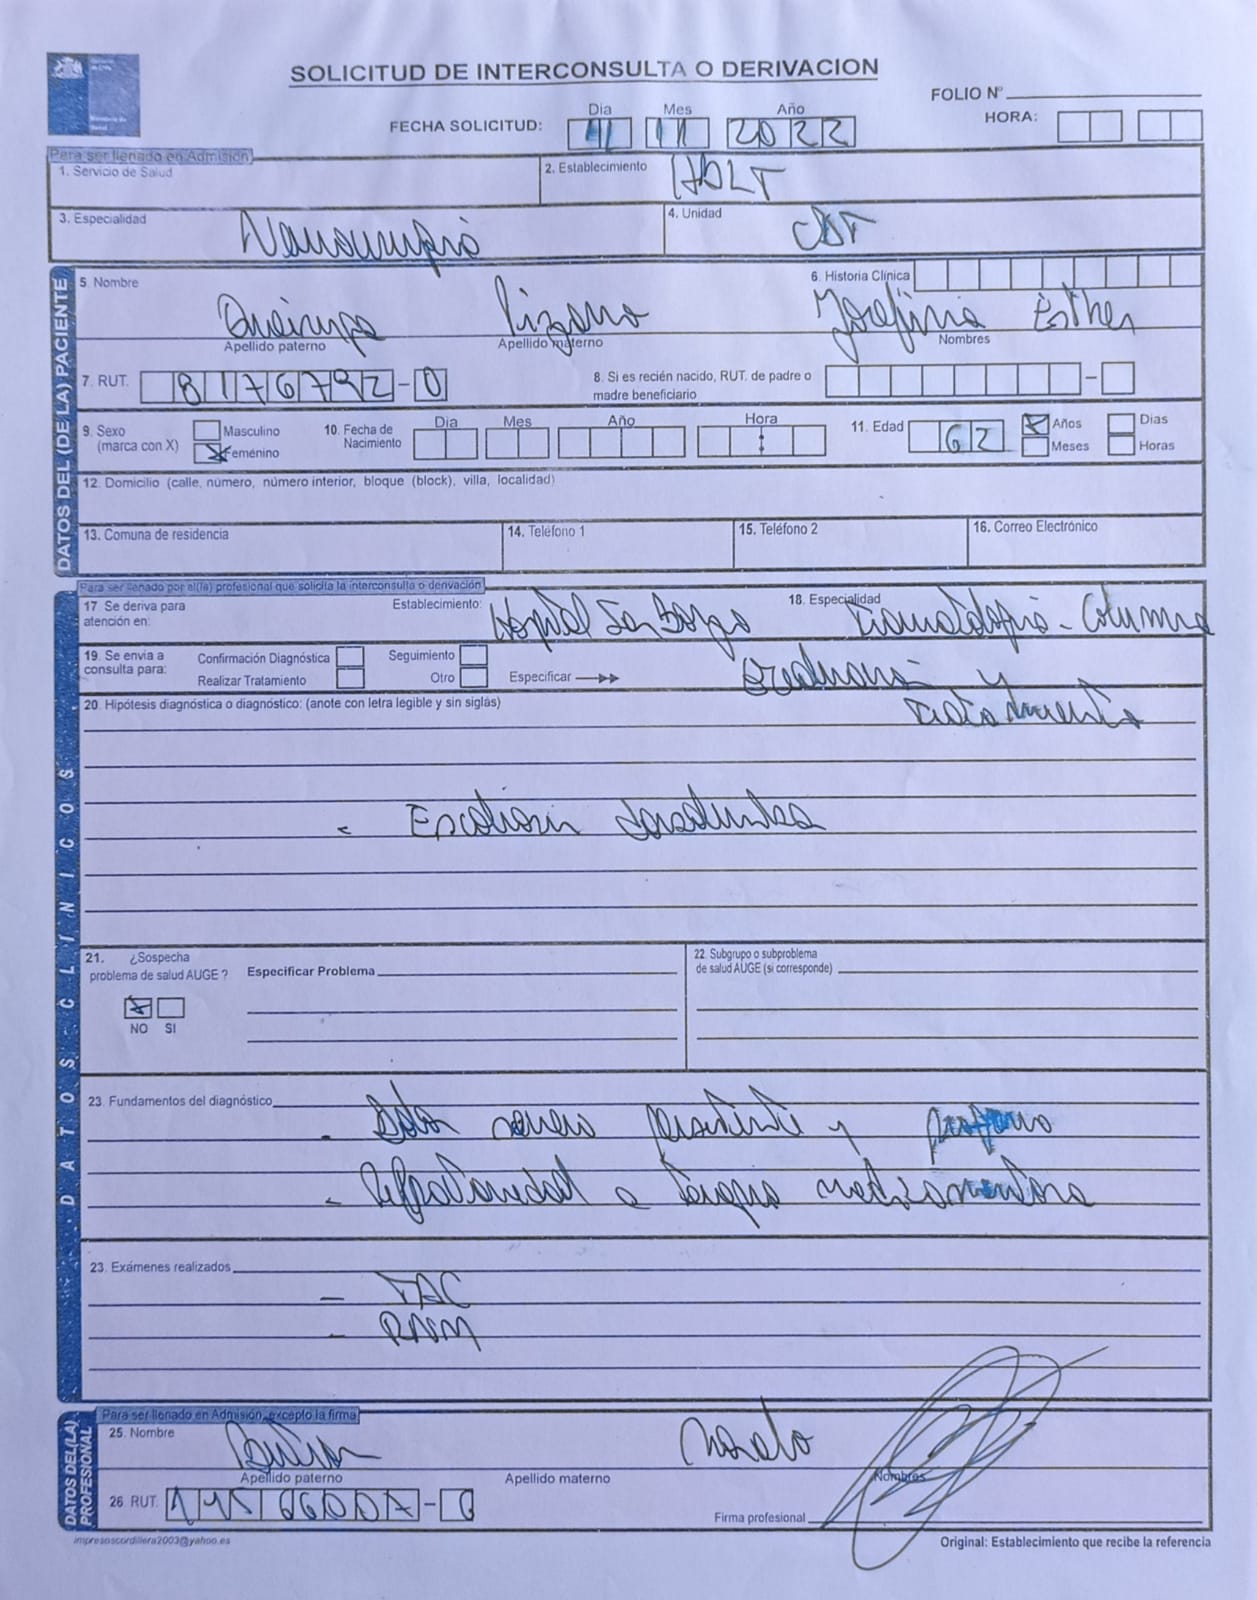 SOLICITUD DE INTERCONSULTA O DERIVACION
FOLIO N°
Dia Mes Año
FECHA SOLICITUD: 11 2022 HORA:
Para ser llenado en Admisión)
1. Servicio de Salud 2. Establecimiento
3. Especialidad 4. Unidad
DATOS DEL (DE LA) PACIENTE
5. Nombre 6. Historia Clínica
Pizarro Josefina Esther
Apellido paterno Apellido materno Nombres
7. RUT. 8176792-0 8. Si es recién nacido, RUT. de padre o
madre beneficiario
9. Sexo
(marca con X) Masculino
X Femenino
10. Fecha de
Nacimiento Dia Mes Año Hora
11. Edad 62 X Años Dias
Meses Horas
12. Domicilio (calle, número, número interior, bloque (block), villa, localidad)
13. Comuna de residencia 14. Teléfono 1 15. Teléfono 2 16. Correo Electrónico
DATOS CLINICOS
Para ser llenado por el(la) profesional que solicita la interconsulta o derivación
17 Se deriva para
atención en: Establecimiento: Hospital San Borja 18. Especialidad Traumatología - Columna
19. Se envia a
consulta para: Confirmación Diagnóstica Seguimiento
Realizar Tratamiento Otro Especificar
Evaluación y
tratamiento
20. Hipótesis diagnóstica o diagnóstico: (anote con letra legible y sin siglas)
- Escoliosis
21. ¿Sospecha
problema de salud AUGE ? Especificar Problema
X
NO SI
22 Subgrupo o subproblema
de salud AUGE (si corresponde)
23. Fundamentos del diagnóstico
- Dolor severo persistente y
- Refractariedad a terapia medicamentosa
23. Exámenes realizados
- TAC
- RNM
DATOS DEL(LA) PROFESIONAL
Para ser llenado en Admisión, excepto la firma
25. Nombre
Apellido paterno Apellido materno Nombres
26. RUT.
Firma profesional
impresoscordillera2003@yahoo.es Original: Establecimiento que recibe la referencia